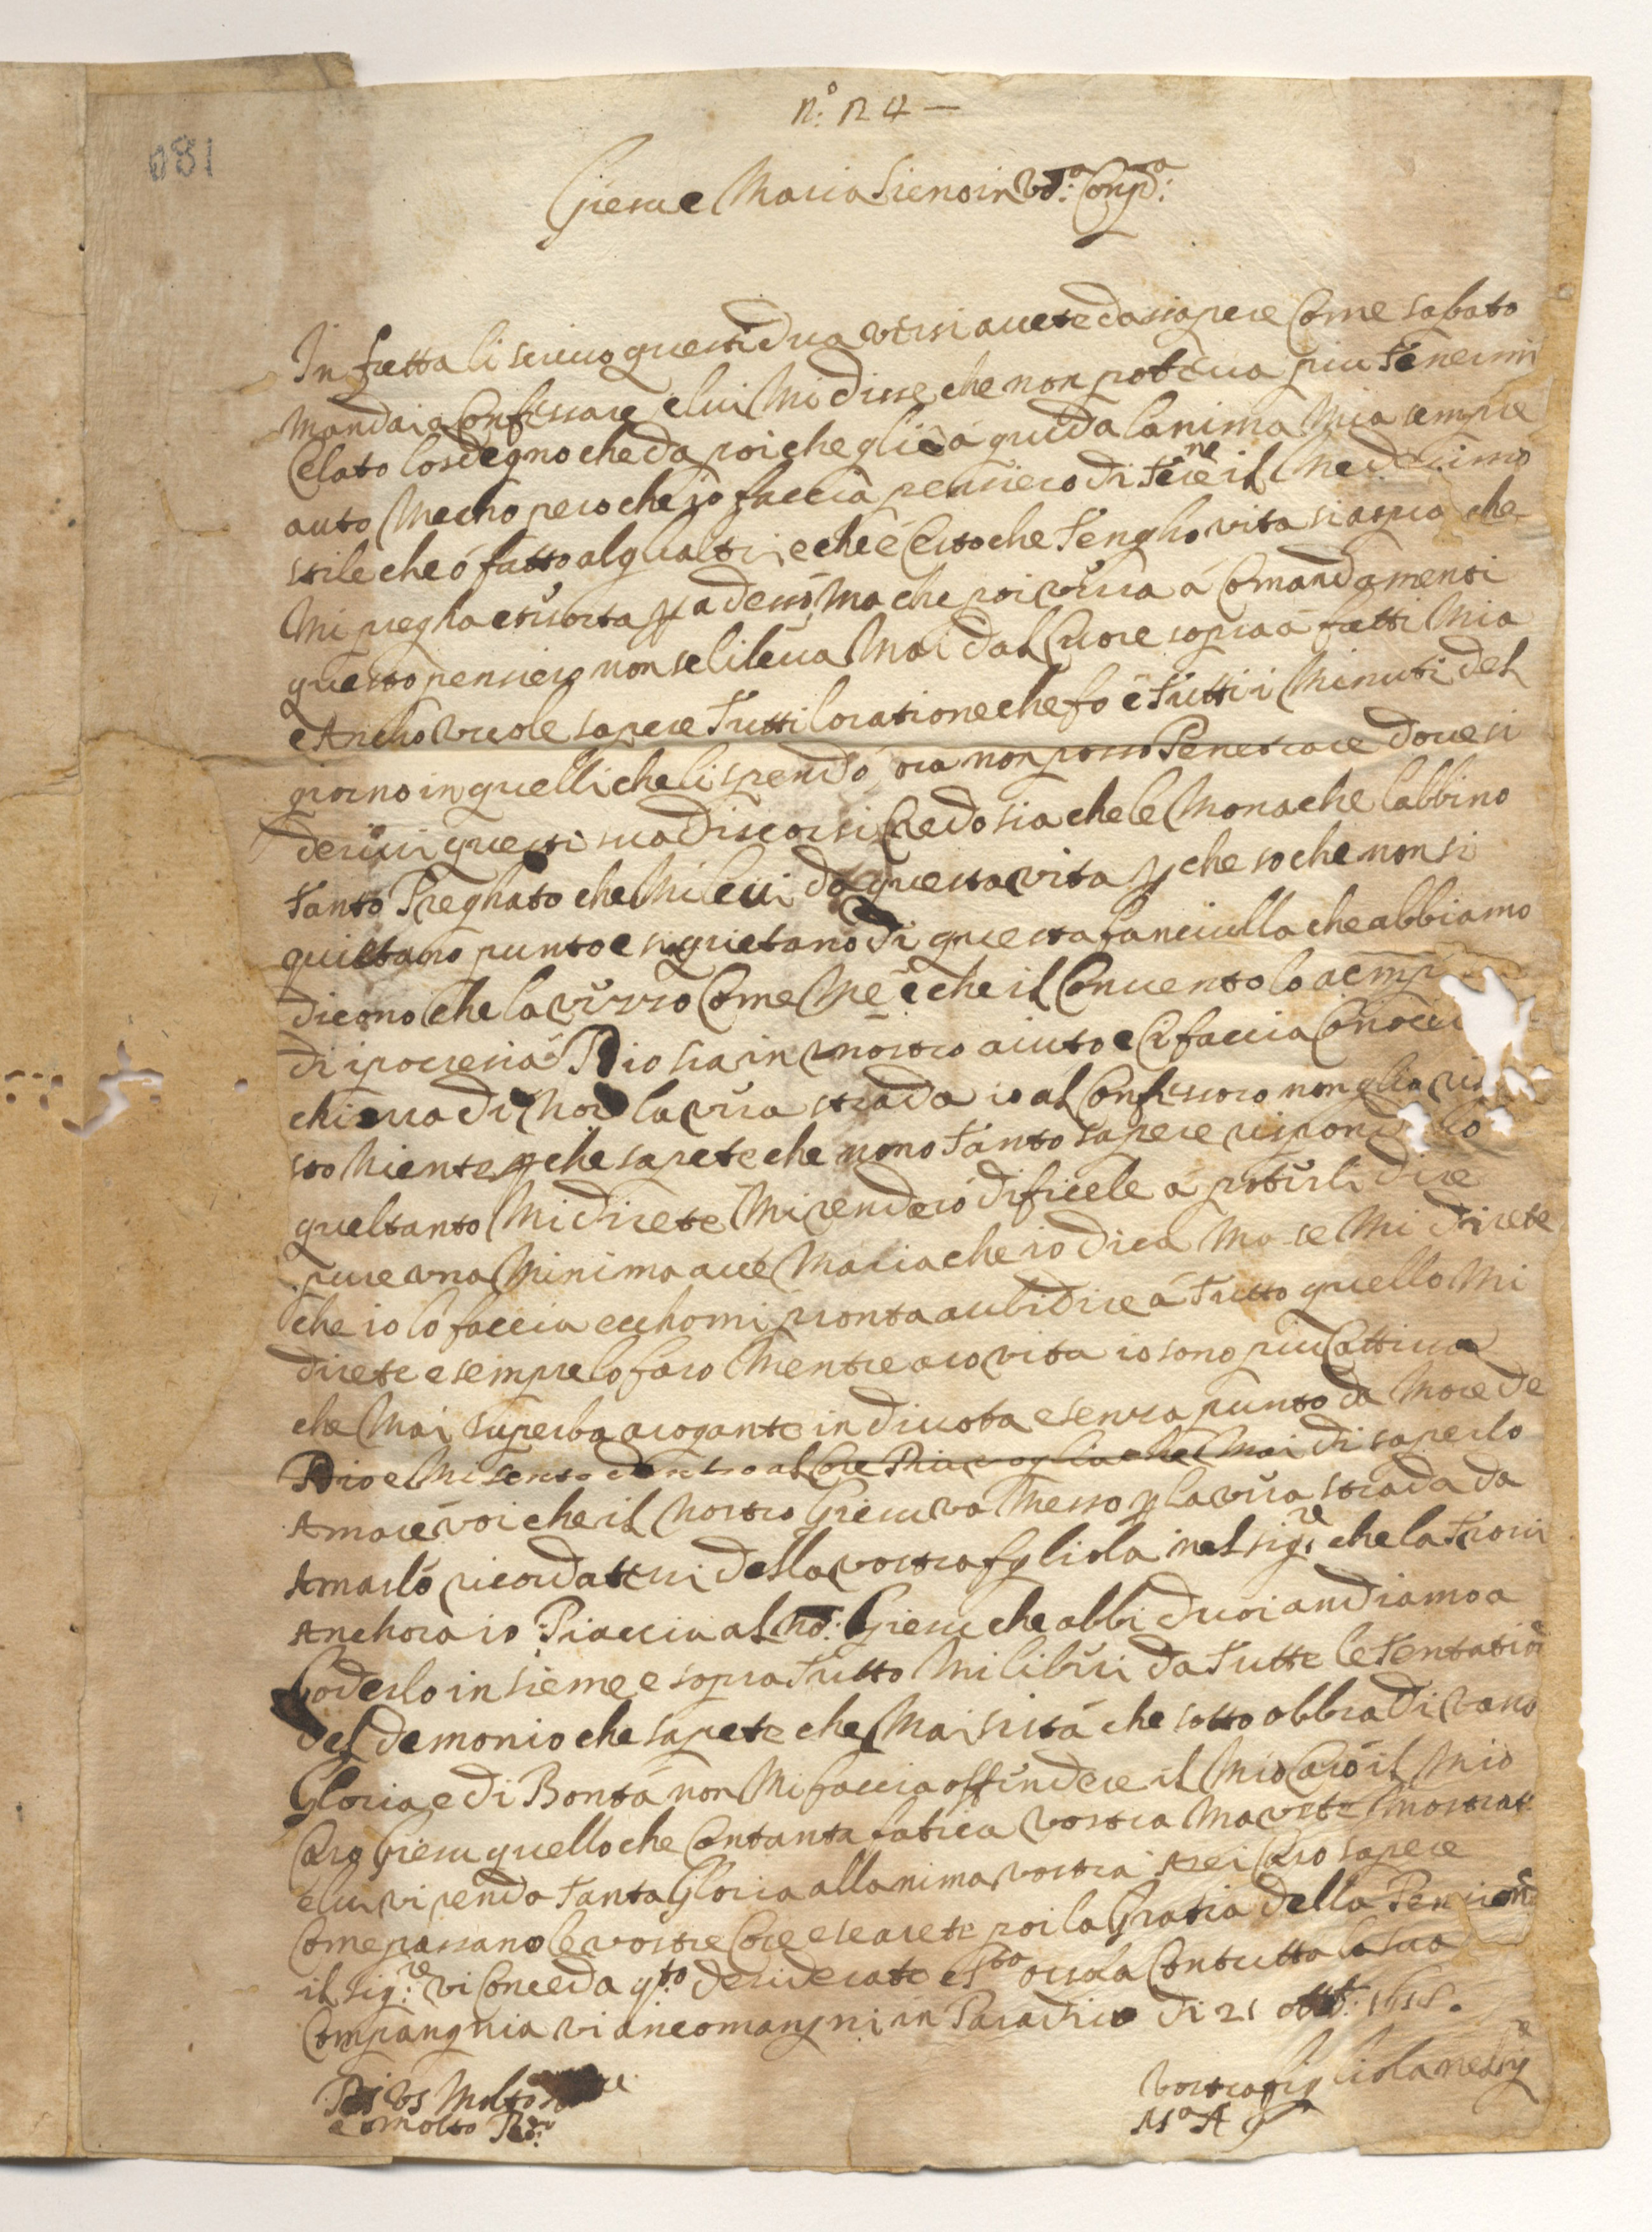 n.° 124 —
081
Giesu e Maria sieno in vos.ª Comp.ª:
In fretta li scrivo questi dua versi avete da ssapere Come sabato
Mandai a Confessare e lui Mi disse che non poteva piu tenermi
Celato lo sdegno che da poi che gli é á guida lanima Mia sempre
auto Mecho pero che io faccia pensiero di tenere il Medesimo
stile che ó fatto al qualtri e che é Certo che tengho vita si aspra che
Mi pregha et isorta p adesso Ma che poi verra á Comandamenti
questo pensiero non se li leva Mai dal Cuore sopra á fatti Mia
e Ancho vuole sapere tutti loratione che fo e tutti i Minuti del
giorno in quelli che li spendo ora non posso Penetrare dove si
derivi questi sua discorsi Credo sia che le Monache labbino
tanto Preghato che Mi levi da questa vita p che so che non si
quietano punto e si quietano di questa fanciulla che abbiamo
dicono che la vizzio Come Me e che il Convento lo aemp
di ipocresia Dio sia in nostro aiuto e Ci faccia Conoce
chi era di Noi la vera strada io al Confessoro non glia ris
sto Niente p che sapete che nono tanto sapere rispond lo
quel tanto Mi direte Mi renderó dificele á poterli dire
pure una Minima ave Maria che io dica Ma se Mi direte
che io lo faccia ecchomi pronta a ubidire á tutto quello Mi
direte e sempre lo faro Mentre aro vita io sono piu Cattiva
che Mai superba arogante indivota e senza punto da More de
Dio e Mi sento dentro al Core Piu voglia che Mai di saperlo
Amare voi che il Nostro Giesu va Messo p la vera strada da
Amarlo ricordatevi della vostra figliola nel sig.re che la trovi
Anchora io Piaccia al No.: Giesu che abbi duoi andiamo a
Goderlo insieme e sopra tutto Mi liberi da tutte le tentation
del demonio che sapete che Mai si sta che sotto obbra di vana
Gloria e di Bontá non Mi faccia offendere il Mio Caro il Mio
Caro Giesu quello che Con tanta fatica vostra Mavete Mostrat
e lui vi renda tanta Gloria allanima vostra Arei Caro sapere
Come passano le vostre Cose e se arete poi la Gratia della Pension
il sig.re vi Conceda q.to desiderate e s.ta orsola Con tutta la sua
Compangnia vi anconpangni in Paradiso di 21 ottob.:
Di Vs Molto
e Molto Re.:
vostra figliola nel sig
M.ª A G